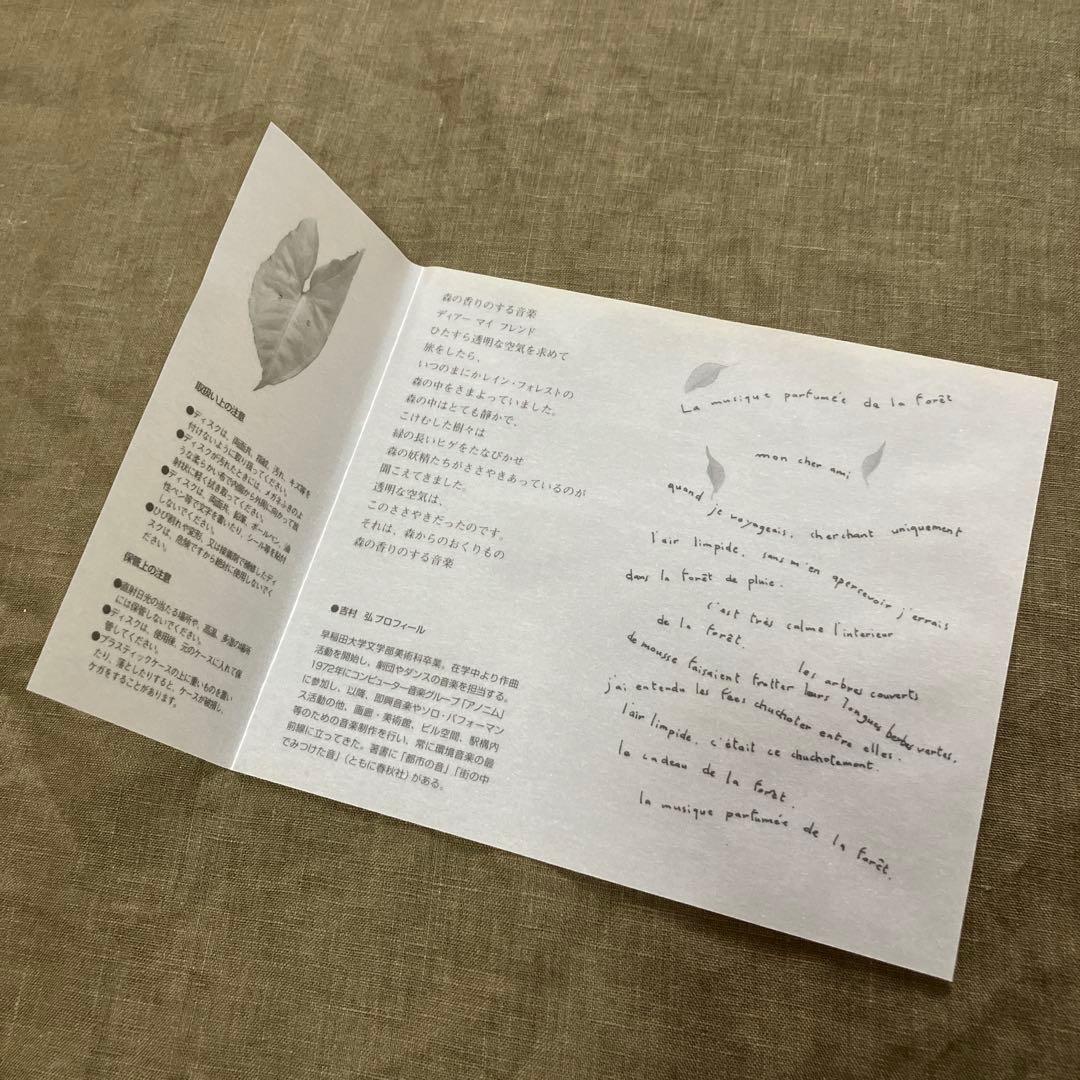 取扱い上の注意
●ディスクは、両面共、指紋、汚れ、キズ等を
付けないように取り扱ってください。
●ディスクが汚れたときには、メガネふきのよ
うな柔らかい布で内周から外周に向かって放
射状に軽く拭き取ってください。
●ディスクは、両面共、鉛筆、ボールペン、油
性ペン等で文字を書いたり、シール等を貼付
しないでください。
●ひび割れや変形、又は接着剤で補修したディ
スクは、危険ですから絶対に使用しないでく
ださい。
保管上の注意
●直射日光の当たる場所や、高温、多湿の場所
には保管しないでください。
●ディスクは、使用後、元のケースに入れて保
管してください。
●プラスティックケースの上に重いものを置い
たり、落としたりすると、ケースが破損し、
ケガをすることがあります。
森の香りのする音楽
ディアー マイ フレンド
ひたすら透明な空気を求めて
旅をしたら、
いつのまにかレイン・フォレストの
森の中をさまよっていました。
森の中はとても静かで、
こけむした樹々は
緑の長いヒゲをたなびかせ
森の妖精たちがささやきあっているのが
聞こえてきました。
透明な空気は、
このささやきだったのです。
それは、森からのおくりもの
森の香りのする音楽
●吉村 弘 プロフィール
早稲田大学文学部美術科卒業。在学中より作曲
活動を開始し、劇団やダンスの音楽を担当する。
1972年にコンピューター音楽グループ「アノニム」
に参加し、以降、即興音楽やソロ・パフォーマン
ス活動の他、画廊・美術館、ビル空間、駅構内
等のための音楽制作を行い、常に環境音楽の最
前線に立ってきた。著書に「都市の音」「街の中
でみつけた音」（ともに春秋社）がある。
La musique parfumée de la forêt
mon cher ami
quand je voyageais, cherchant uniquement
l'air limpide, sans m'en apercevoir j'errais
dans la forêt de pluie.
c'est très calme l'interieur
de la forêt. les arbres couverts
de mousse faisaient frotter leurs longues berbes vertes,
j'ai entendu les fées chuchoter entre elles.
l'air limpide, c'était ce chuchotement.
le cadeau de la forêt.
la musique parfumée de la forêt.